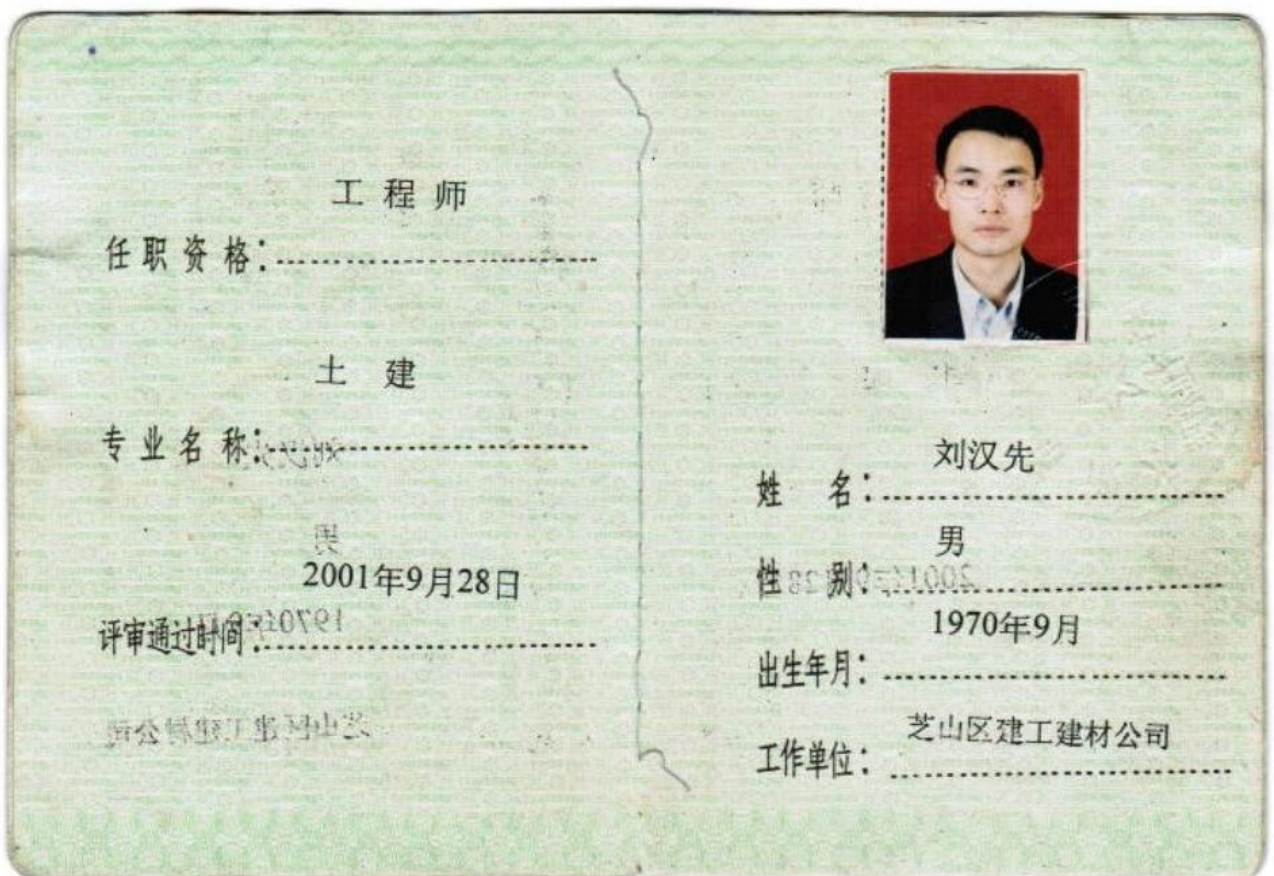 工程师
任职资格：
土建
专业名称：
2001年9月28日
评审通过时间：
刘汉先
姓名：
男
性别：
1970年9月
出生年月：
芝山区建工建材公司
工作单位：